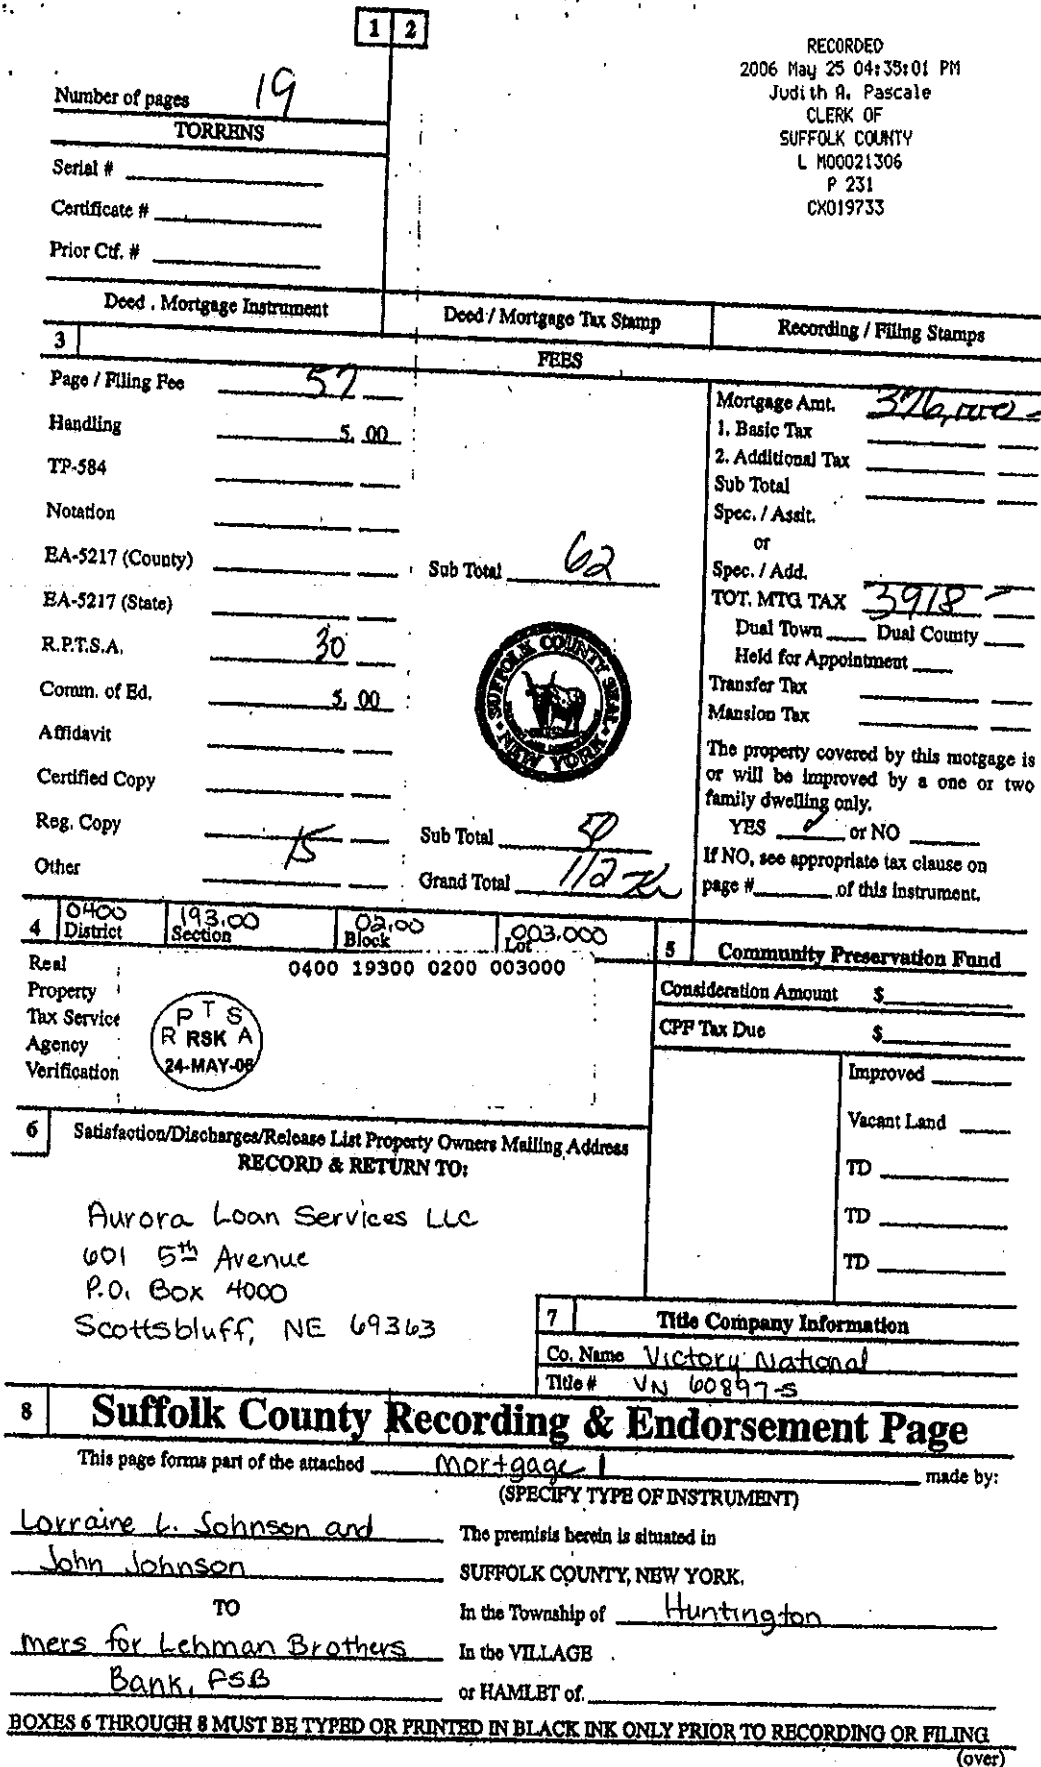 1 2
RECORDED
2006 May 25 04:35:01 PM
Judith A. Pascale
CLERK OF
SUFFOLK COUNTY
L M00021306
P 231
CX019733
Number of pages 19
TORRENS
Serial #
Certificate #
Prior Ctf. #
Deed . Mortgage Instrument
Deed / Mortgage Tax Stamp
Recording / Filing Stamps
3
FEES
Page / Filing Fee 57
Handling 5. 00
TP-584
Notation
EA-5217 (County)
Sub Total 62
EA-5217 (State)
R.P.T.S.A. 30
Comm. of Ed. 5. 00
Affidavit
Certified Copy
Reg. Copy 15
Sub Total 50
Other
Grand Total 112
SUFFOLK COUNTY SEAL
NEW YORK
Mortgage Amt. 376,000 -
1. Basic Tax
2. Additional Tax
Sub Total
Spec. / Assit.
or
Spec. / Add.
TOT. MTG TAX 3918 -
Dual Town Dual County
Held for Appointment
Transfer Tax
Mansion Tax
The property covered by this motgage is
or will be improved by a one or two
family dwelling only.
YES ✓ or NO
If NO, see appropriate tax clause on
page # of this instrument.
4 0400 193.00 02.00 003.000
District Section Block Lot
Real
Property
Tax Service
Agency
Verification
0400 19300 0200 003000
P T S
R RSK A
24-MAY-06
5 Community Preservation Fund
Consideration Amount $
CPF Tax Due $
Improved
Vacant Land
TD
TD
TD
6 Satisfaction/Discharges/Release List Property Owners Mailing Address
RECORD & RETURN TO:
Aurora Loan Services LLC
601 5th Avenue
P.O. Box 4000
Scottsbluff, NE 69363
7 Title Company Information
Co. Name Victory National
Title # VN 60897-S
8 Suffolk County Recording & Endorsement Page
This page forms part of the attached Mortgage 1 made by:
(SPECIFY TYPE OF INSTRUMENT)
Lorraine L. Johnson and
John Johnson
TO
mers for Lehman Brothers
Bank, FSB
The premisis herein is situated in
SUFFOLK COUNTY, NEW YORK.
In the Township of Huntington
In the VILLAGE
or HAMLET of
BOXES 6 THROUGH 8 MUST BE TYPED OR PRINTED IN BLACK INK ONLY PRIOR TO RECORDING OR FILING
(over)